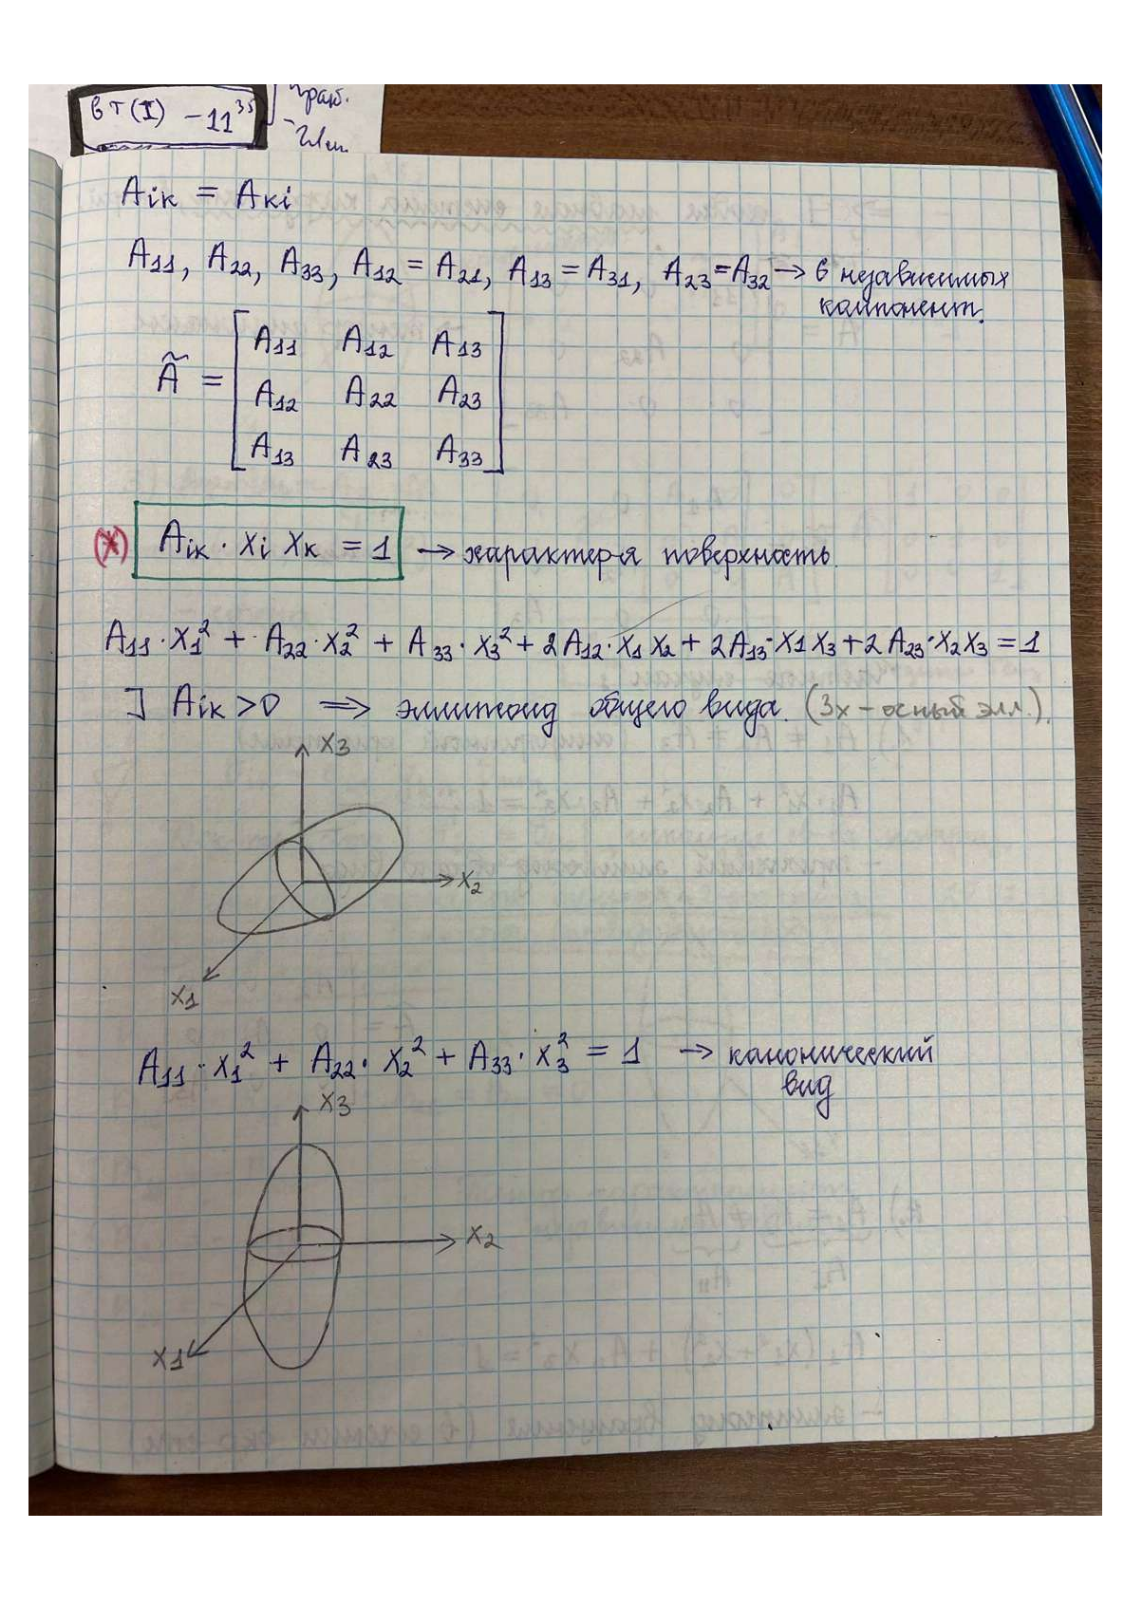 вт(I) - 11³⁵
Aik = Aki
A11, A22, A33, A12 = A21, A13 = A31, A23 = A32 → 6 независимых
компонент.
Ã = [ A11 A12 A13
A12 A22 A23
A13 A23 A33 ]
(*) Aik · xi xk = 1 → характер-я поверхность.
A11·x1² + A22·x2² + A33·x3² + 2A12·x1x2 + 2A13·x1x3 + 2A23·x2x3 = 1
] Aik > 0 ⇒ эллипсоид общего вида. (3х-осный элл.).
x3
x2
x1
A11·x1² + A22·x2² + A33·x3² = 1 → канонический
вид
x3
x2
x1